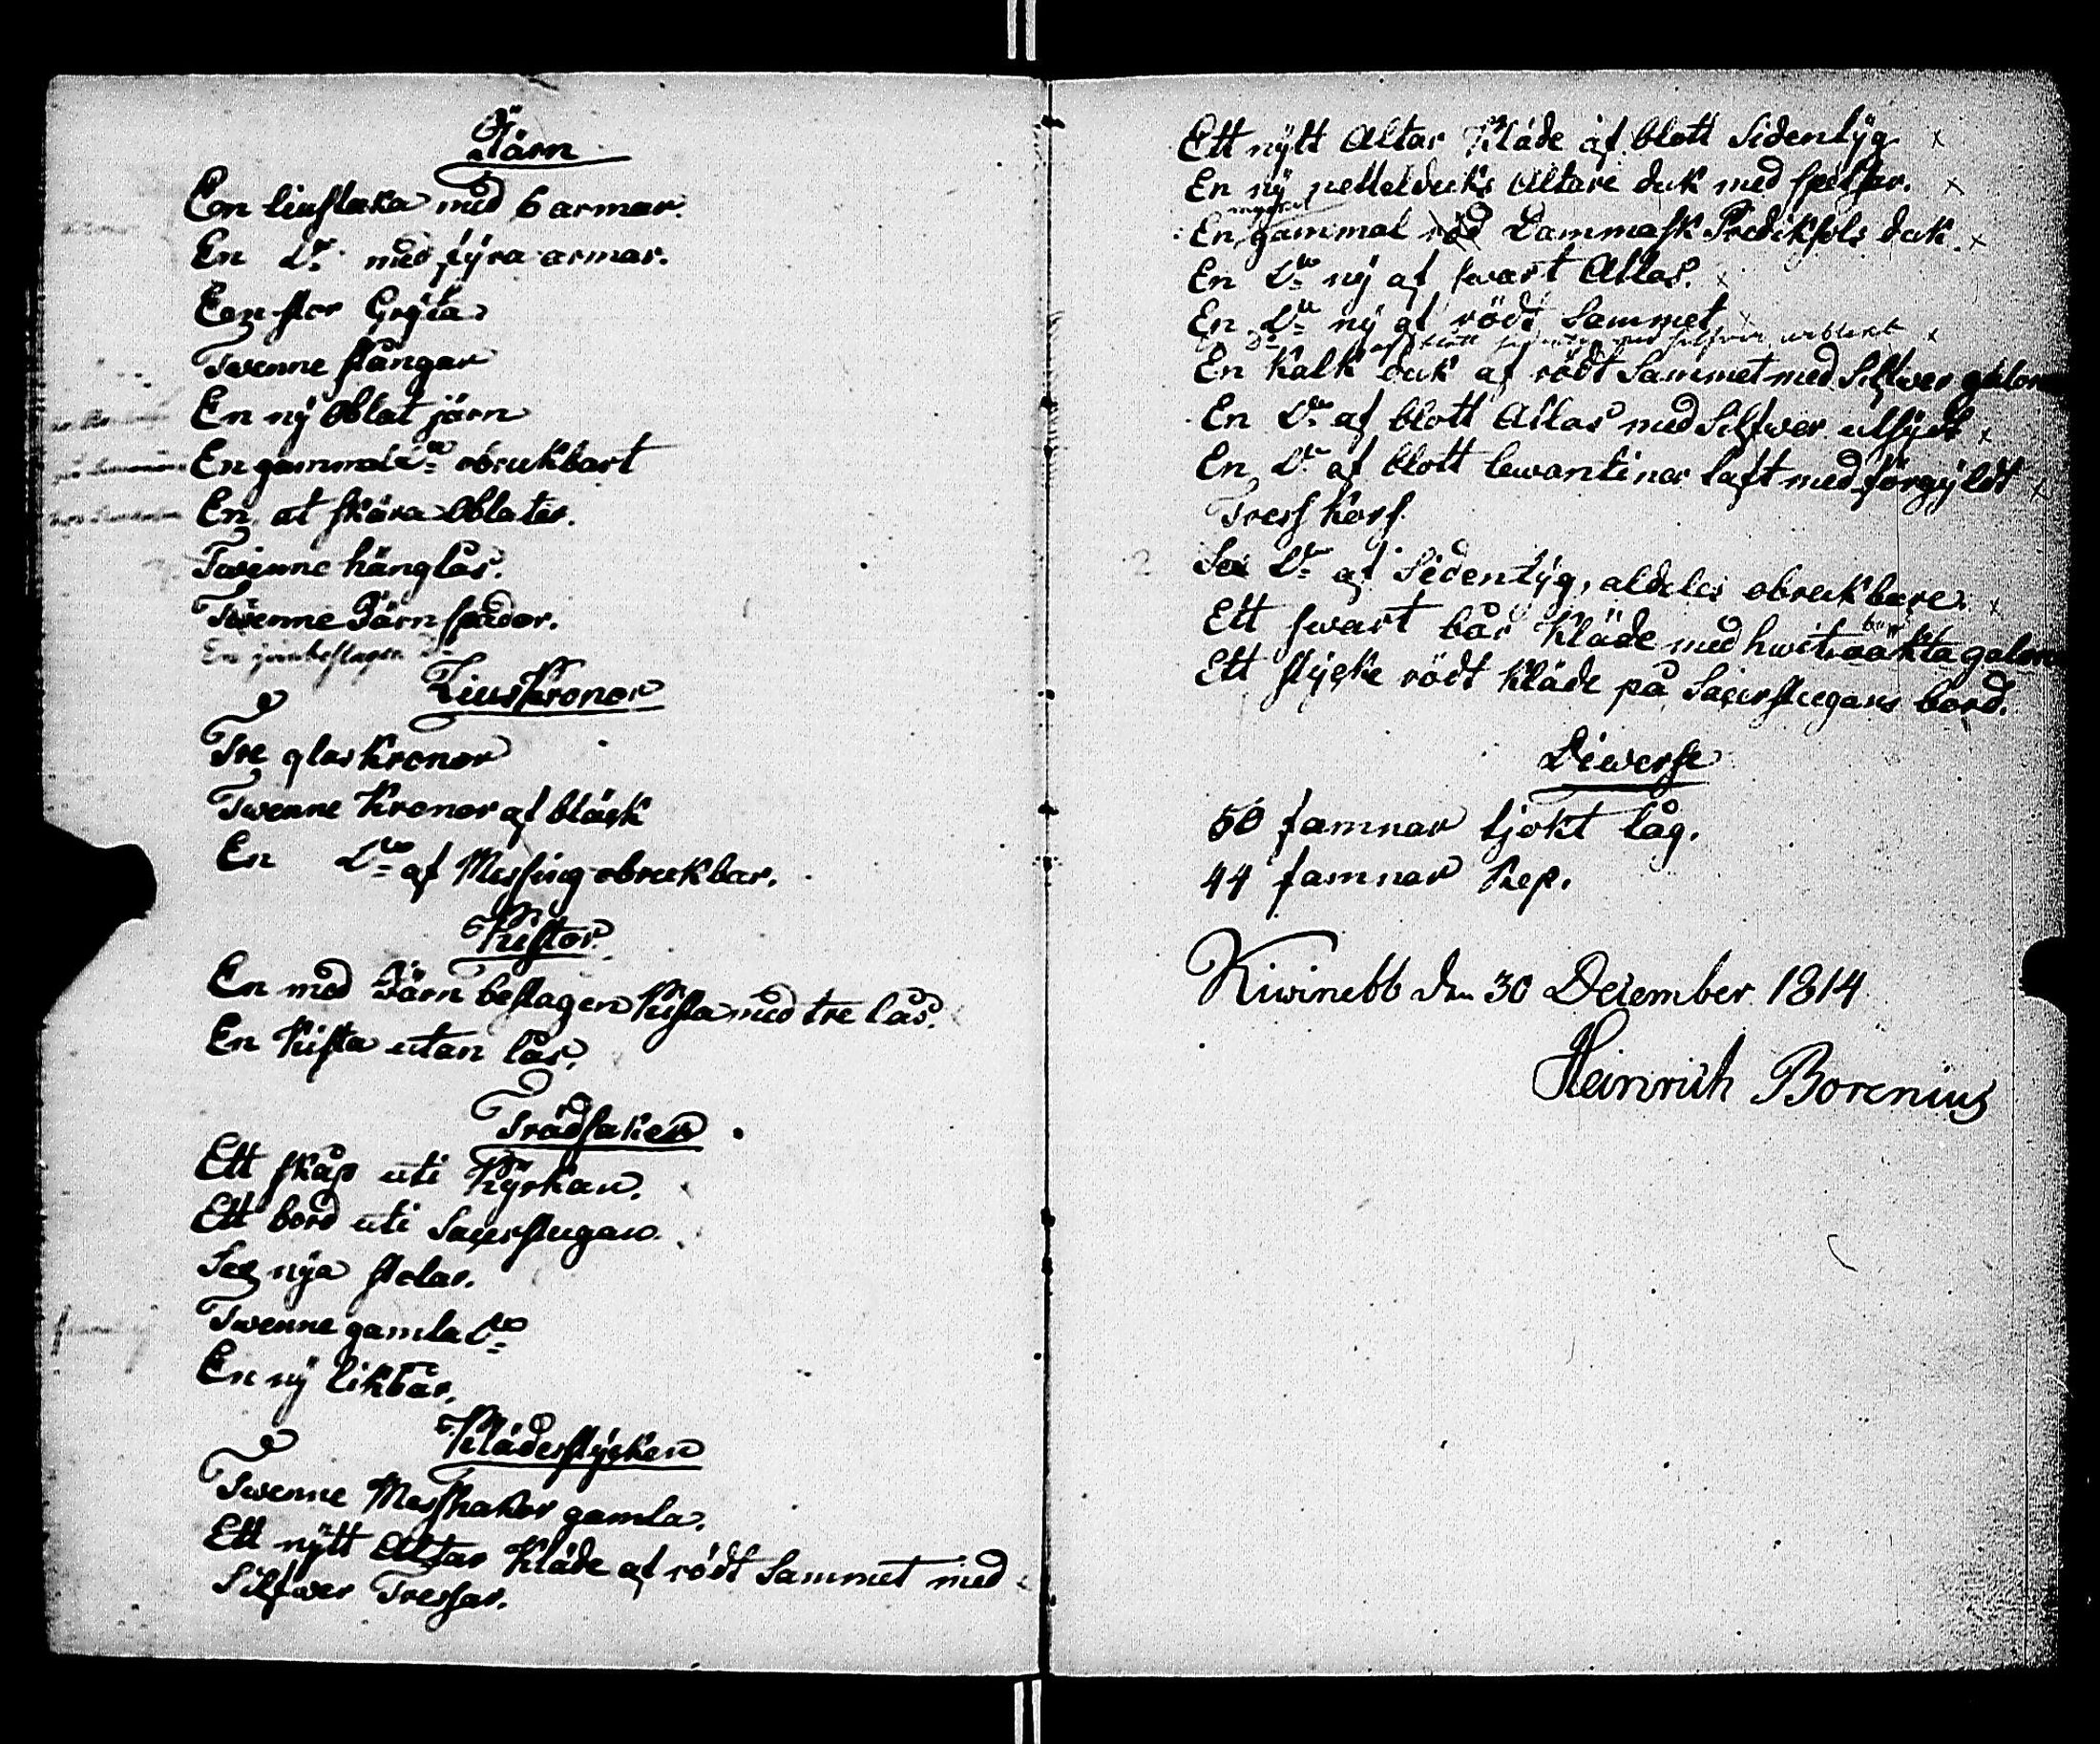 Järn
En liustaka med 6 armar.
En Do med fyra armar.
En stor Gryta
Twenne stänger
En ny Oblat järn
En gammal do obrukbart
En at skära Oblater.
Twenne hänglås.
Twenne Järn spador.
En jernbeslagen
Liuskronor
Tre glas Kronor
Twenne Kronor af bläck
En Do af Messing obrukbar.
Kistor
En med Järn beslagen Kista med tre lås.
En Kista utan lås.
Trädsaker
Ett skåp uti Kyrkan.
Ett bord uti Sacerstugan.
Sex nya stolar.
Twenne gamla Do
En ny likbår.
Klädesstycken
Twenne Messhakor gamla.
Ett nytt Altar Kläde af rödt Sammet med
Silfwer Tressar.
Ett nytt Altar Kläde af blott Sidentyg x
En ny nettelduks Altare duk med spetsar. x
En gammal röd Dammask Predikstols duk. x
En Do ny af swart Atlas.
En Do ny af rödt Sammet
En Kalk duk af rödt Sammet med Silfwer galoner
En Do af blott Atlas med Silfwer utsyet x
En Do af blott lewantiner taft med förgyldt x
Tress Kors.
Sex Do af Sidentyg, aldeles obrukbare. x
Ett swart bår Kläde med hwita oäkta galoner
Ett stycke rödt Kläde på Sacerstugans bord.
Diwerse
50 famnar tjokt tåg.
44 famnar Rep.
Kiwinebb den 30 December 1814
Heinrich Borenius